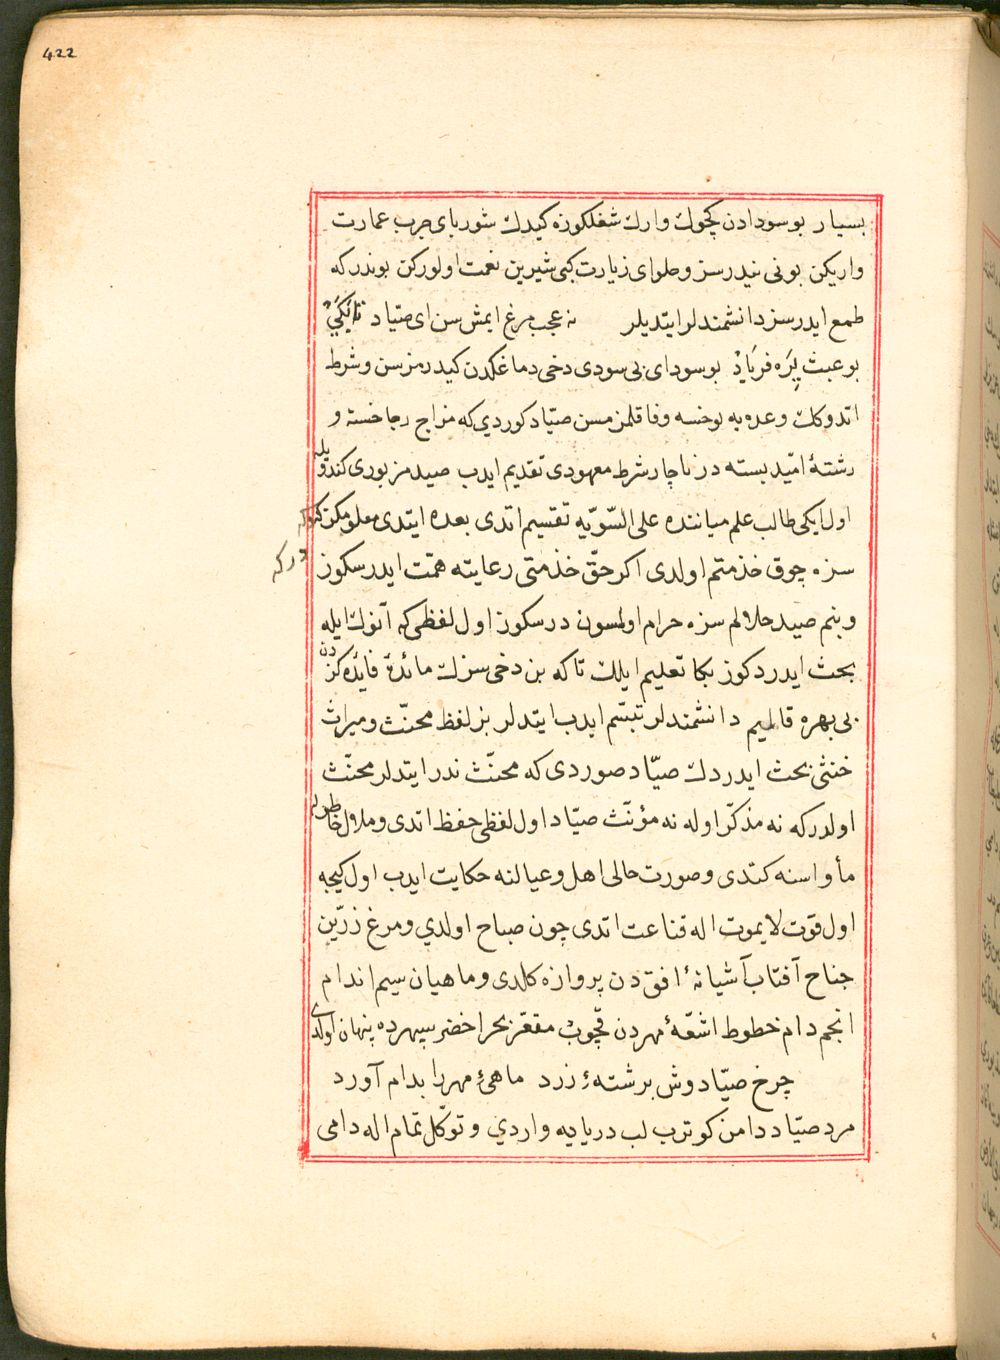 422
بسيار بوسودادن كچوك وارك شغلكوزه كيدك شورباى چرب عمارت
واريكن بونى نيدرسز وحلواى زيارت كبى شيرين نعمت اولوركن بوندركه
طمع ايدرسز دانشمندلر ايتديلر نه عجب مرغ ايمش سن اى صيّاد تا يَكَيْ
بو عبث يِرَه فرياد بوسوداى بى سودى دخى دماغكدن كيدرمزسن وشرط
اتدوكك وعده يه نوخسه وفا قلمزمسن صيّاد كوردي كه مزاج رجا خسته و
رشتهٔ امّيد بسته در ناچار شرط معهودى تقديم ايدب صيد مزبورى كندويله
اول ايكى طالب علم مياننده على السّويّه تقسيم اتدى بعده ايتدى معلومكز
دركه
سزه چوق خذمتم اولدى اكر حقّ خذمتى رعايته همّت ايدرسكوز
وبنم صيد حلالم سزه حرام اولمسون درسكوز اول لفظى كه آنوك ايله
بحث ايدردكوز بكا تعليم ايلك تا كه بن دخى سزك مائدهٔ فائده كزدن
بى بهره قالميم دانشمندلر تبسّم ايدب ايتدلر بز لفظ محنّث وميراث
خنثى بحث ايدردك صيّاد صوردى كه محنّث ندر ايتدلر محنّث
اولدركه نه مذكّر اوله نه مؤنّث صيّاد اول لفظى حفظ اتدى وملال خاطرله
مأواسنه كتدى وصورت حالى اهل وعيالنه حكايت ايدب اول كيجه
اول قوت لايموت اله قناعت اتدى چون صباح اولدي ومرغ زرّين
جناح آفتاب آشيانهٔ افق دن پروازه كلدى وماهيان سيم اندام
انجم دام خطوط اشعّهٔ مهردن قچوب مقعّر بحر اخضر سپهرده پنهان اولدى
چرخ صيّادوش برشتهٔ زرد ماهئ مهر را بدام آورد
مرد صيّاد دامن كوترب لب دريايه واردي وتوكّل تمّام اله دامى